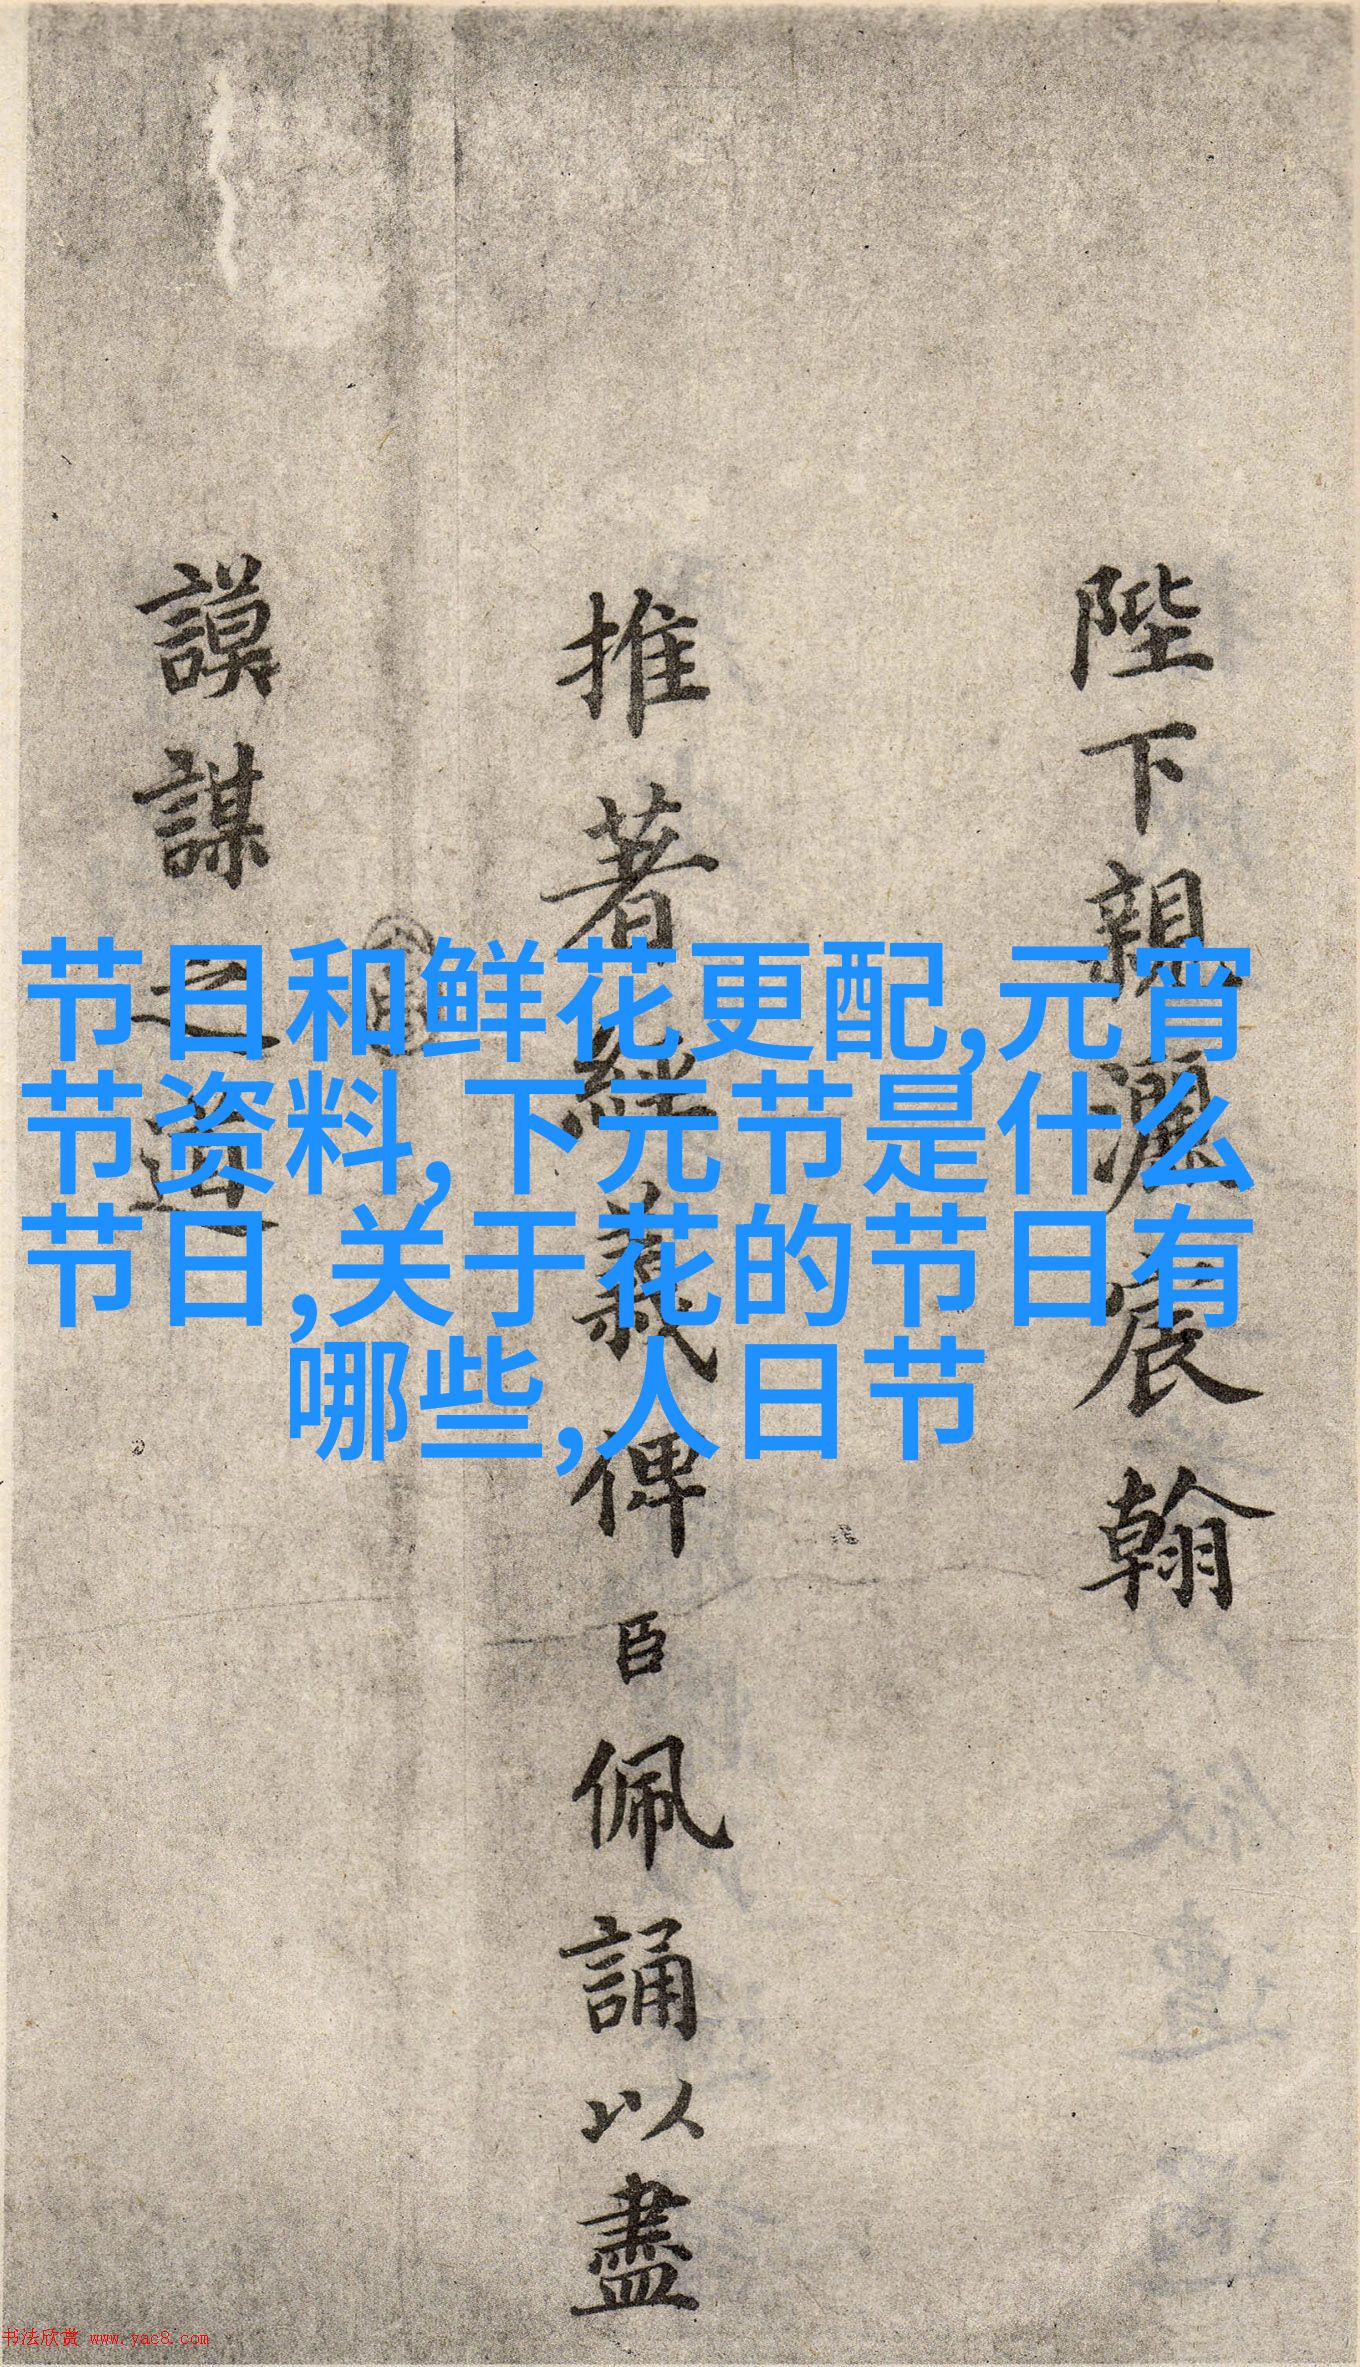 陛下親灑宸翰
推著經義俾臣佩誦以盡
謨謀之道
节日和鲜花更配,元宵
节资料,下元节是什么
节日,关于花的节日有
哪些,人日节
书法欣赏 www.yac8.com